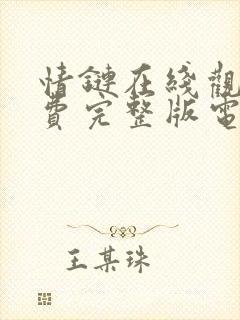 情鏈在綫觀
費完整版電
王某珠